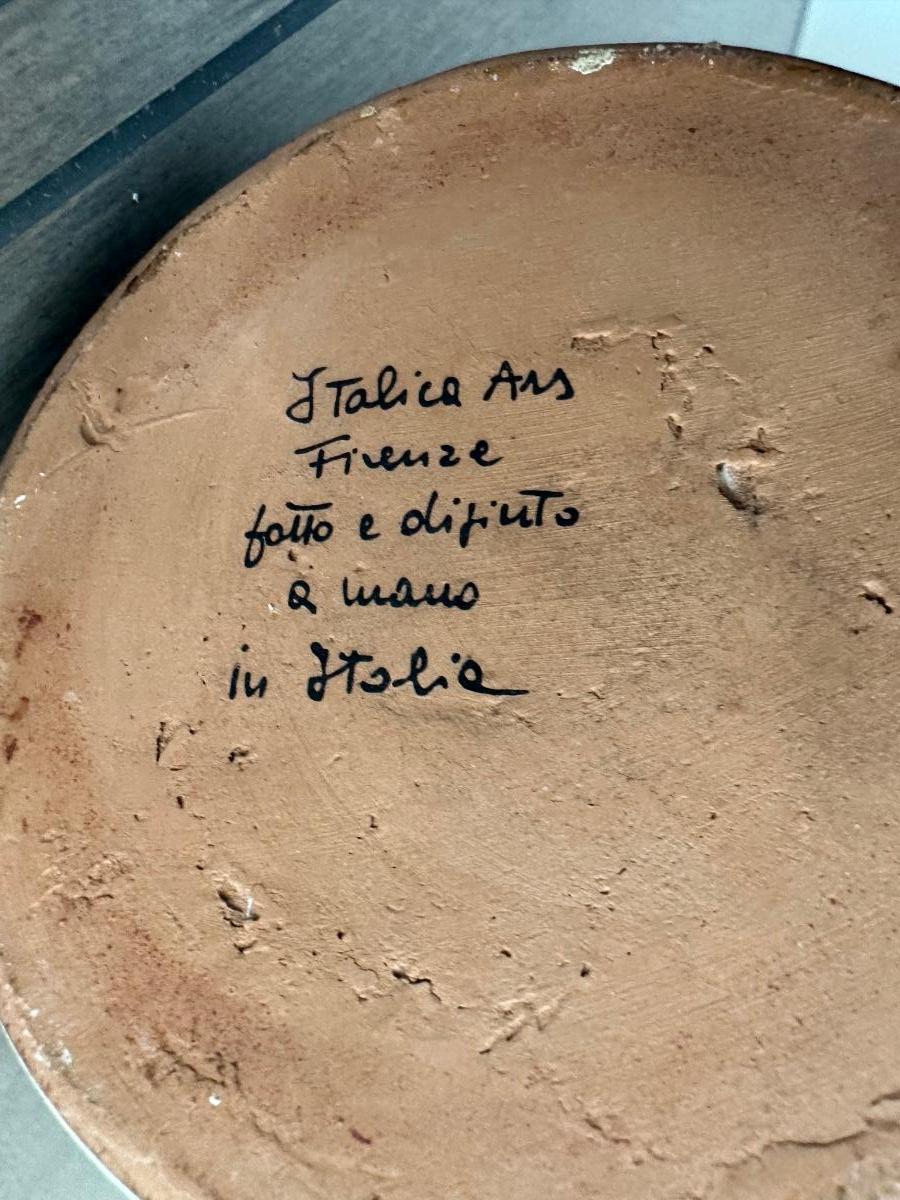 Italica Ars
Firenze
fatto e dipinto
a mano
in Italia